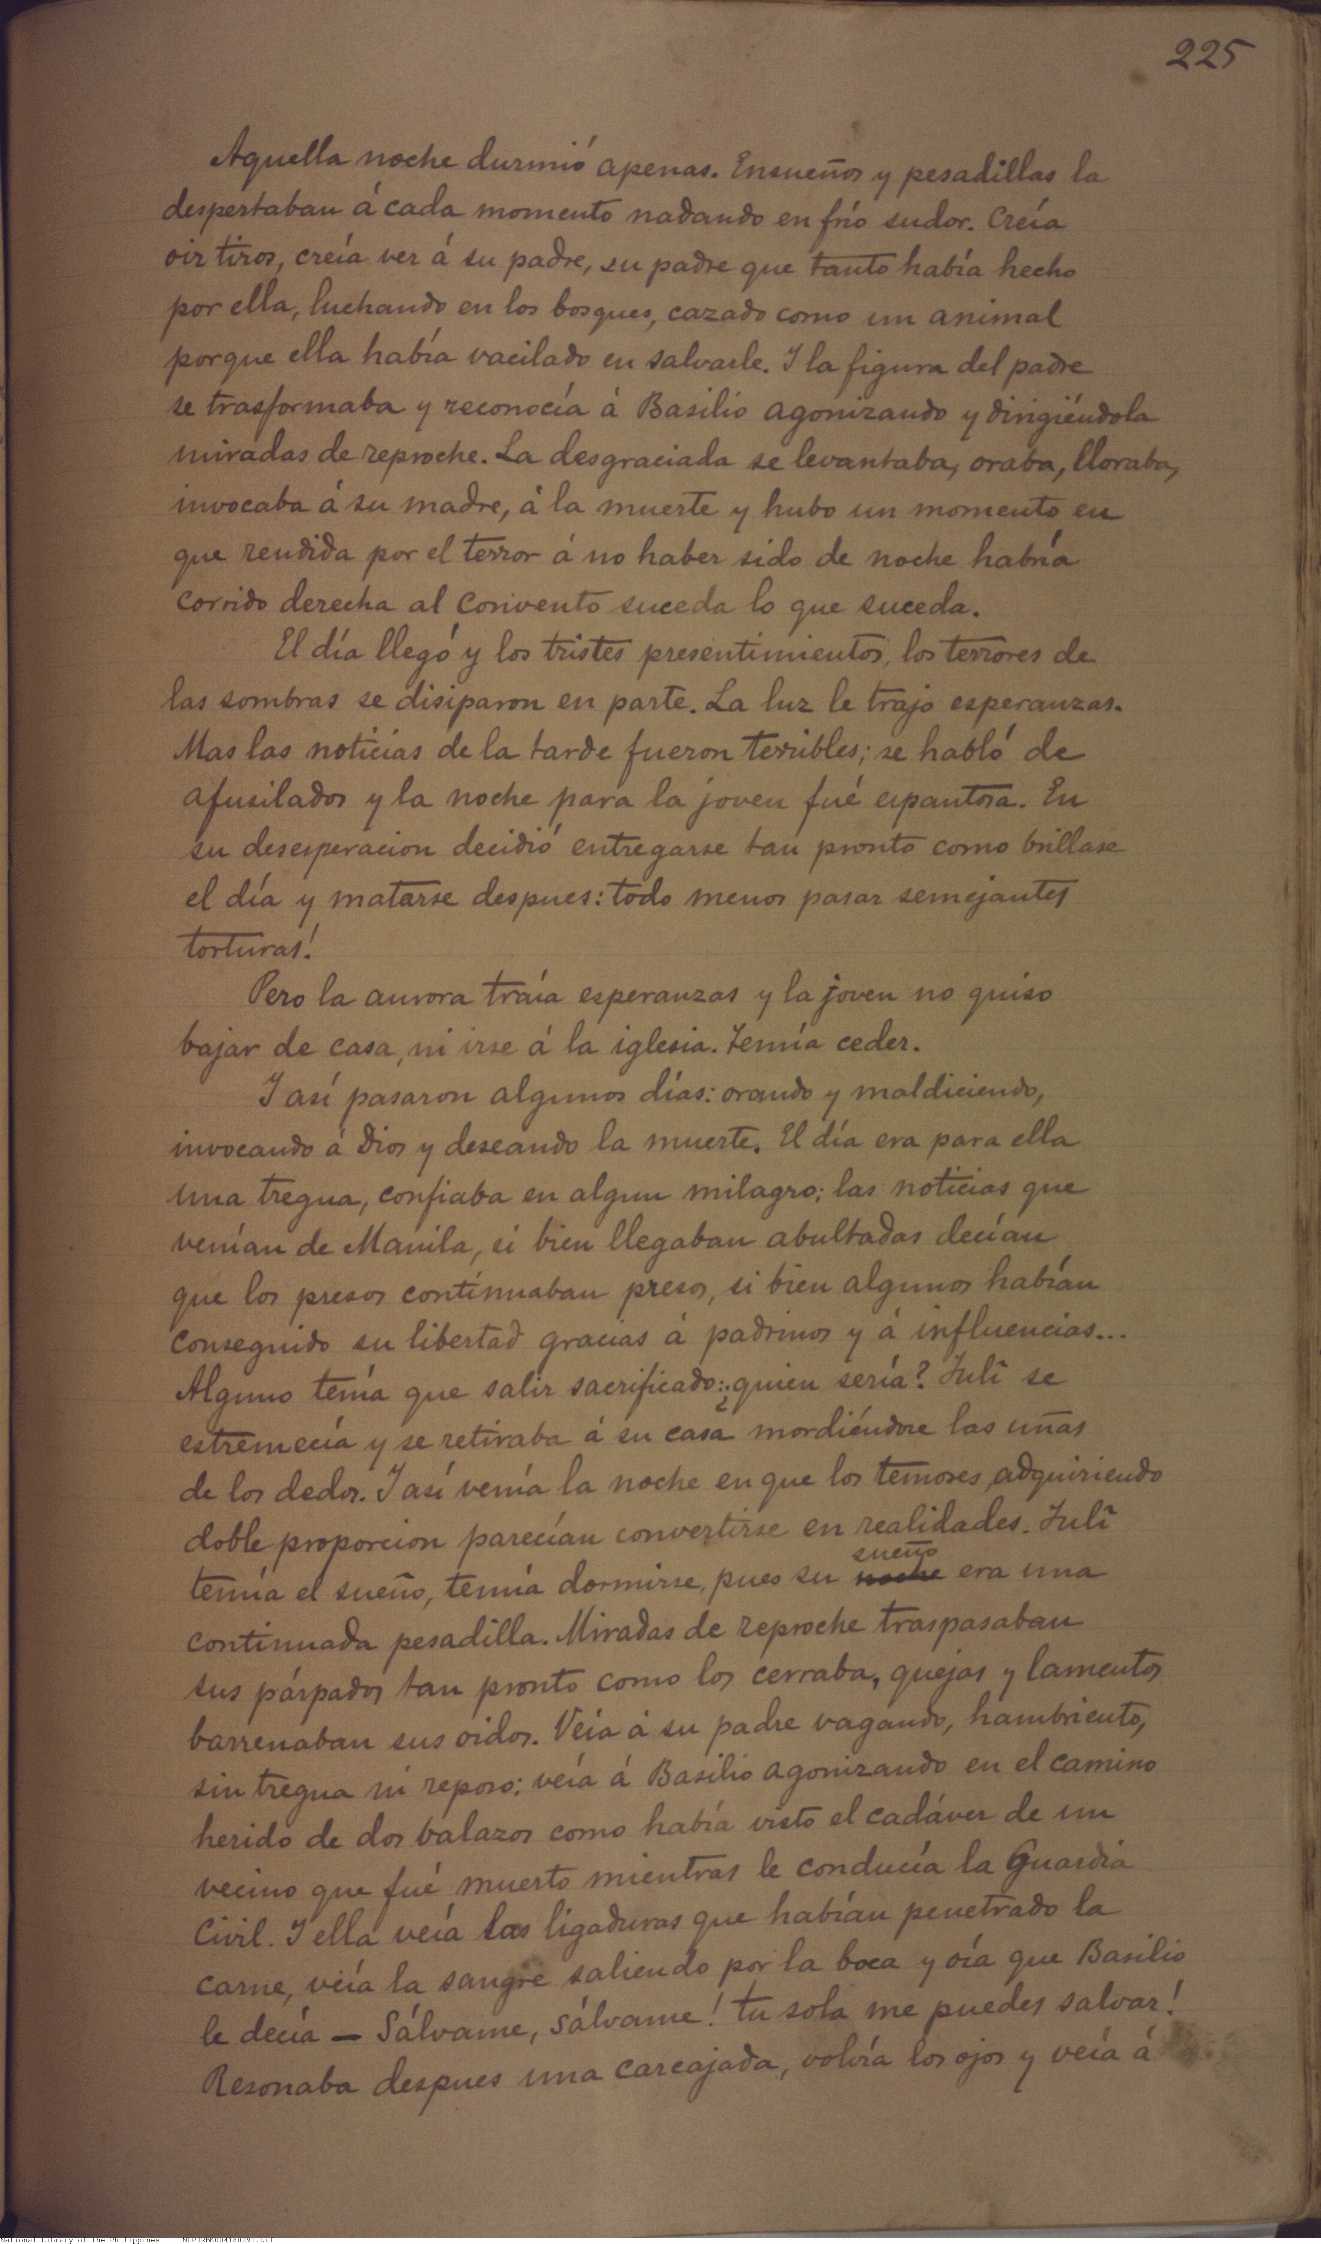 225
Aquella noche durmió apenas. Ensueños y pesadillas la
despertaban á cada momento nadando en frío sudor. Creía
oir tiros, creía ver á su padre, su padre que tanto había hecho
por ella, luchando en los bosques, cazado como un animal
porque ella había vacilado en salvarle. I la figura del padre
se trasformaba y reconocía á Basilio agonizando y dirigiéndola
miradas de reproche. La desgraciada se levantaba, oraba, lloraba,
invocaba á su madre, á la muerte y hubo un momento en
que rendida por el terror á no haber sido de noche habría
corrido derecha al convento suceda lo que suceda.
El día llegó y los tristes presentimientos, los terrores de
las sombras se disiparon en parte. La luz le trajo esperanzas.
Mas las noticias de la tarde fueron terribles; se habló de
afusilados y la noche para la joven fué espantosa. En
su desesperacion decidió entregarse tan pronto como brillase
el día y matarse despues: todo menos pasar semejantes
torturas!
Pero la aurora traía esperanzas y la joven no quiso
bajar de casa, ni irse á la iglesia. Temía ceder.
I así pasaron algunos días: orando y maldiciendo,
invocando á Dios y deseando la muerte. El día era para ella
una tregua, confiaba en algun milagro; las noticias que
venían de Manila, si bien llegaban abultadas decían
que los presos continuaban presos, si bien algunos habían
conseguido su libertad gracias á padrinos y á influencias...
Alguno tenía que salir sacrificado: ¿quien sería? Julî se
estremecía y se retiraba á su casa mordiéndose las uñas
de los dedos. I así venía la noche en que los temores adquiriendo
doble proporcion parecían convertirse en realidades. Julî
temía el sueño, temía dormirse, pues su noche sueño era una
continuada pesadilla. Miradas de reproche traspasaban
sus párpados tan pronto como los cerraba, quejas y lamentos
barrenaban sus oidos. Veía á su padre vagando, hambriento,
sin tregua ni reposo; veía á Basilio agonizando en el camino
herido de dos balazos como había visto el cadáver de un
vecino que fué muerto mientras le conducía la Guardia
Civil. I ella veía las ligaduras que habían penetrado la
carne, veía la sangre saliendo por la boca y oía que Basilio
le decía — Sálvame, sálvame! tu sola me puedes salvar!
Resonaba despues una carcajada, volvía los ojos y veía á
National Library of the Philippines